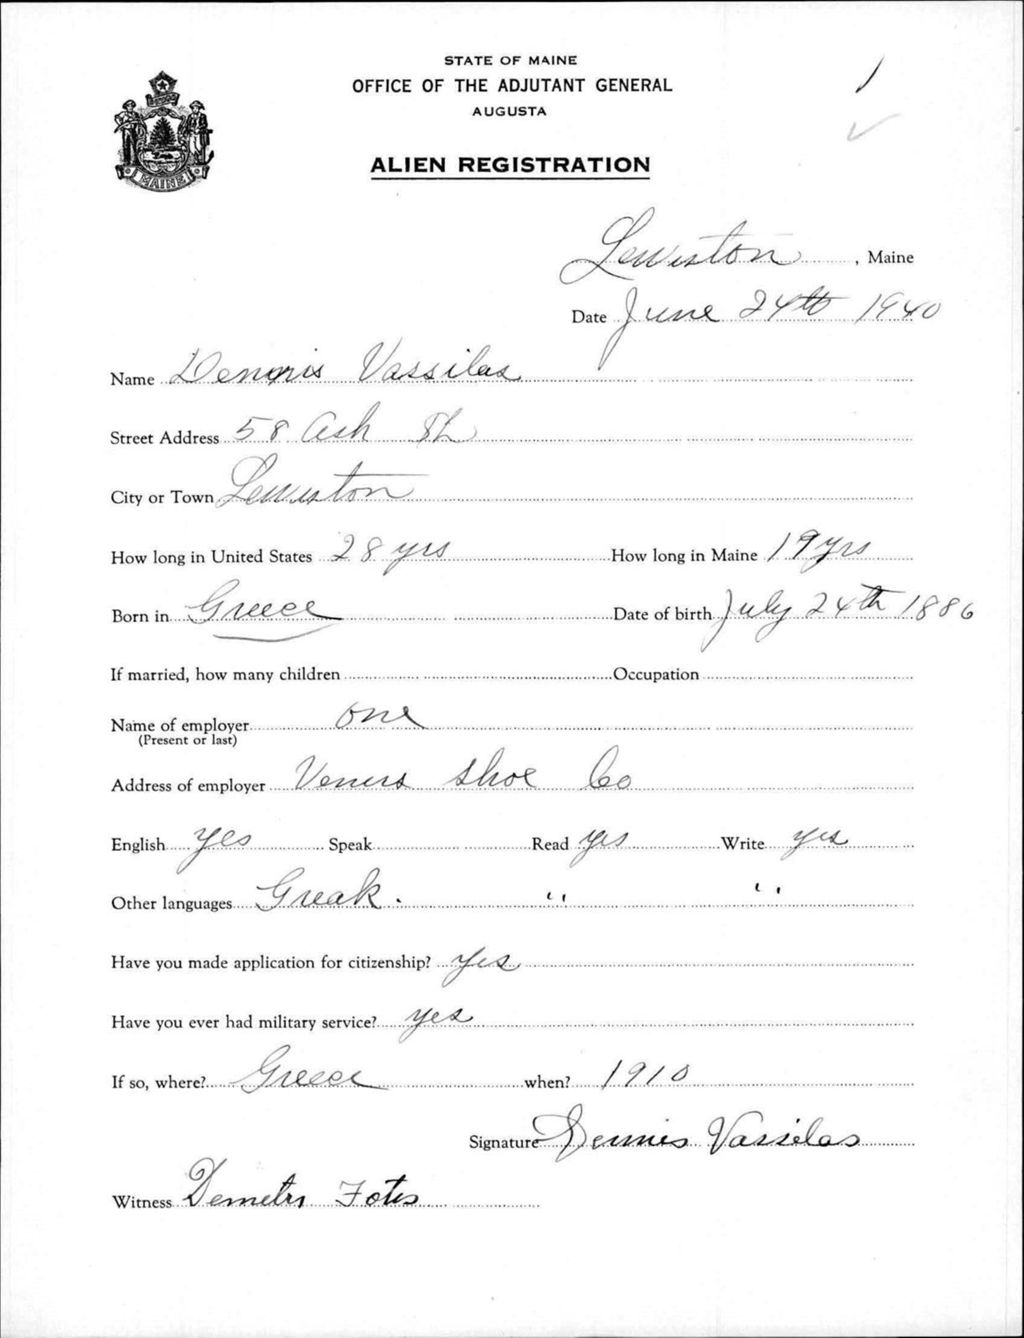 STATE OF MAINE
OFFICE OF THE ADJUTANT GENERAL
AUGUSTA
ALIEN REGISTRATION
MAINE
Lewiston, Maine
Date June 24th 1940
Name Dennis Vassilas
Street Address 58 Ash St
City or Town Lewiston
How long in United States 28 yrs How long in Maine 19 yrs
Born in Greece Date of birth July 24th 1886
If married, how many children Occupation
Name of employer one
(Present or last)
Address of employer Venus Shoe Co
English yes Speak Read yes Write yes
Other languages Greak. " "
Have you made application for citizenship? Yes
Have you ever had military service? yes
If so, where? Greece when? 1910
Signature Dennis Vassilas
Witness Demetri Fotis